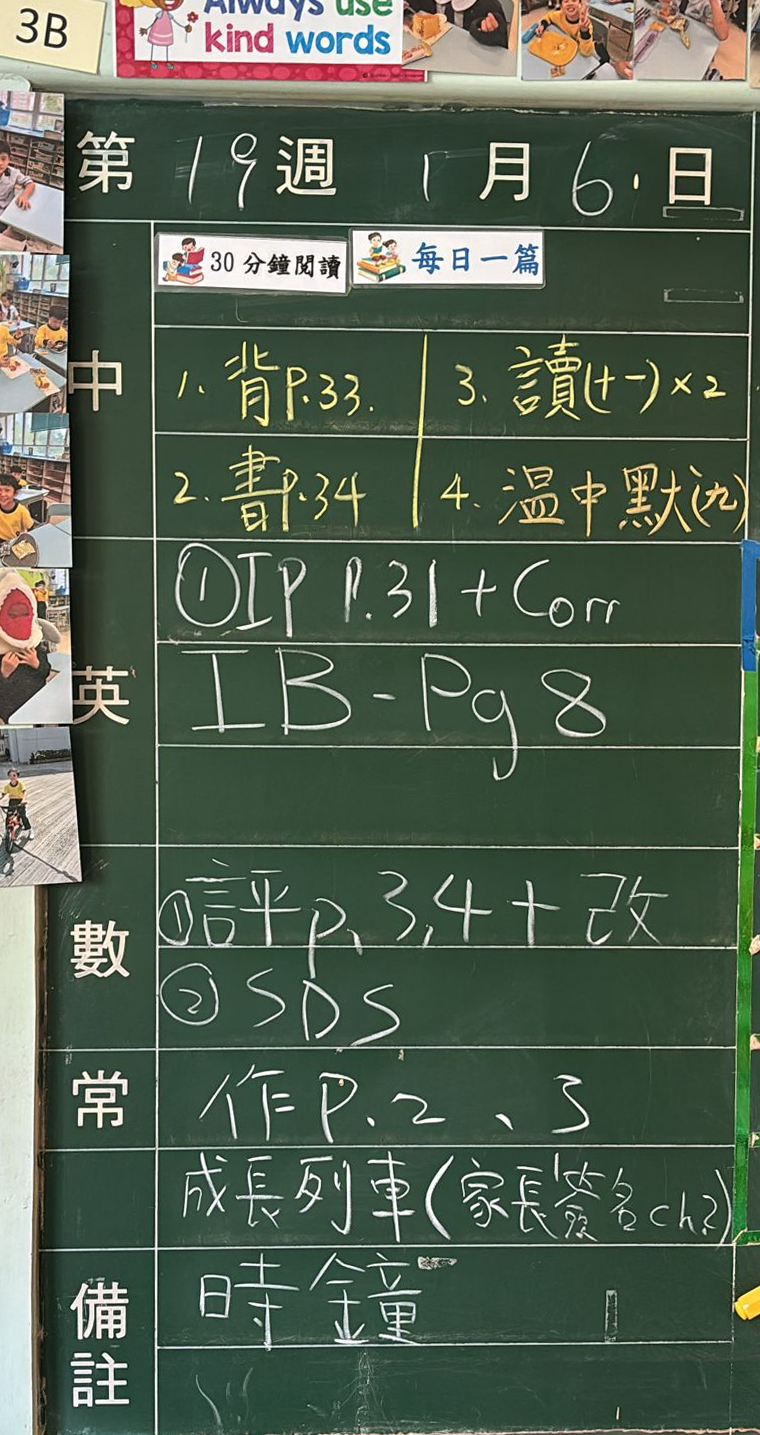 3B
Always use
kind words
第 19 週 1 月 6 日
30分鐘閱讀 每日一篇
中
1. 背P.33. 3. 讀(十一)×2
2. 書P.34 4. 溫中默(九)
英
①IP P.31 + Corr
IB - Pg 8
數
①評p.3,4 + 改
② SDS
常
作P.2、3
成長列車(家長簽名ch.2)
備註
時鐘